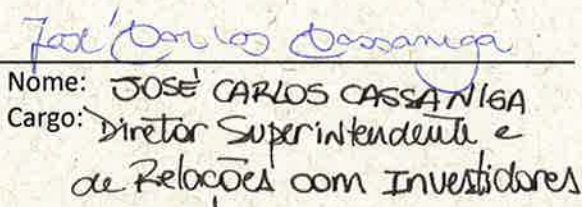 José Carlos Cassaniga
Nome: JOSÉ CARLOS CASSANIGA
Cargo: Diretor Superintendente e
de Relações com Investidores